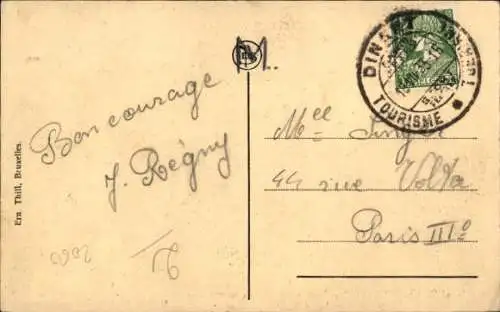 Ern Thill, Bruxelles.
Bon courage
J. Régny
DINANT
TOURISME
Mlle Singer
44 rue Volta
Paris IIIe